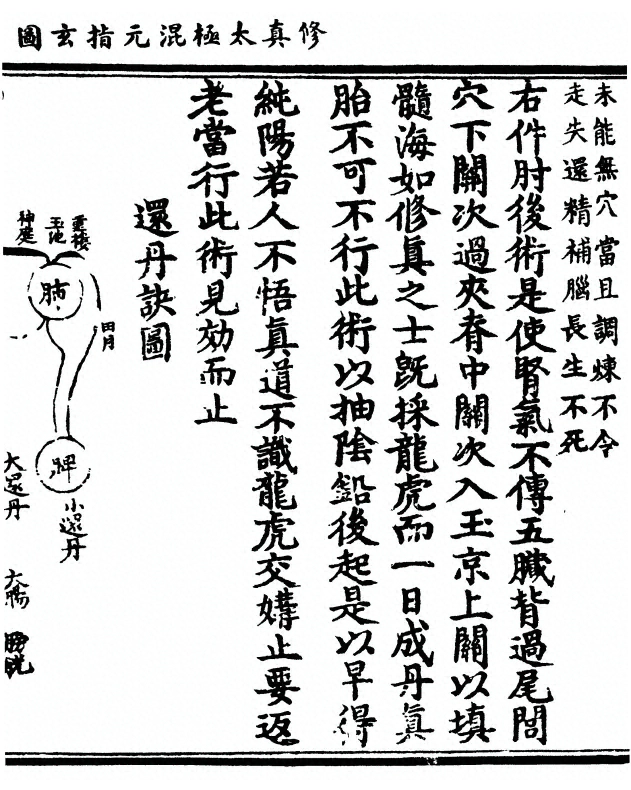 修真太極混元指玄圖
未能無穴當且調煉不令
走失還精補腦長生不死
右件肘後術是使腎氣不傳五臟背過尾閭
穴下關次過夾脊中關次入玉京上關以填
髓海如修真之士既採龍虎而一日成丹真
胎不可不行此術以抽陰鉛後起是以早得
純陽若人不悟真道不識龍虎交媾止要返
老當行此術見効而止
還丹訣圖
重樓
玉池
神庭
肺
脾
小還丹
大還丹
大腸
膀胱